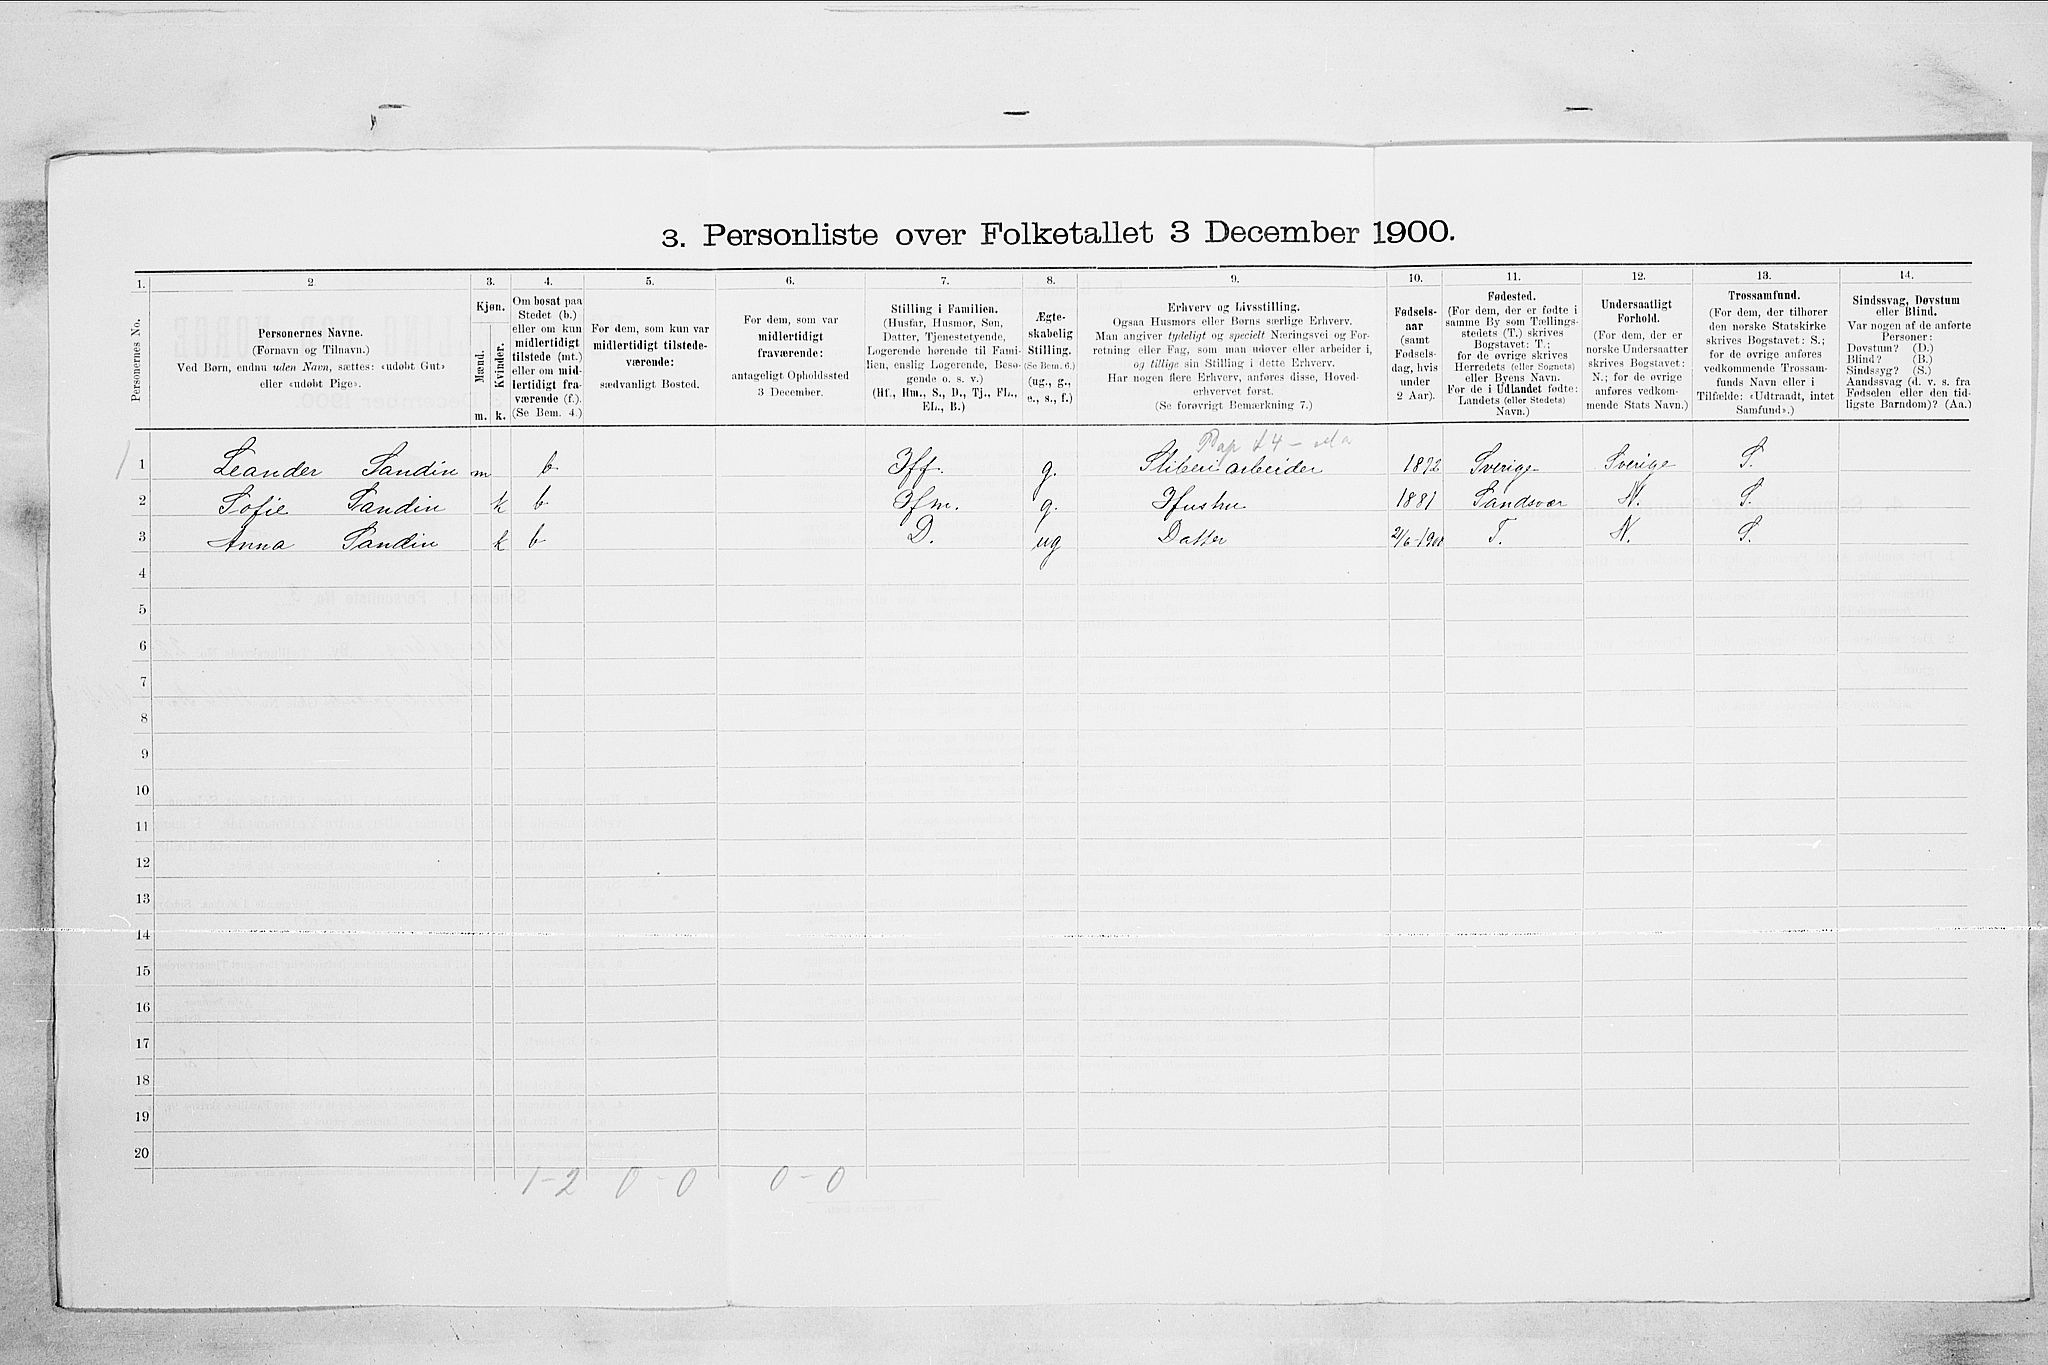 3. Personliste over Folketallet 3 December 1900.
1. 2 3. 4. 5. 6. 7. 8. 9. 10. 11. 12. 13. 14.
Personernes No.
Personernes Navne.
(Fornavn og Tilnavn.)
Ved Børn, endnu uden Navn, sættes: «udøbt Gut»
eller «udøbt Pige».
Kjøn.
Mænd.
Kvinder.
m. k.
Om bosat paa
Stedet (b.)
eller om kun
midlertidigt
tilstede (mt.)
eller om mid-
lertidigt fra-
værende (f.)
(Se Bem. 4.)
For dem, som kun var
midlertidigt tilstede-
værende:
sædvanligt Bosted.
For dem, som var
midlertidigt
fraværende:
antageligt Opholdssted
3 December.
Stilling i Familien.
(Husfar, Husmor, Søn,
Datter, Tjenestetyende,
Logerende hørende til Fami-
lien, enslig Logerende, Besø-
gende o. s. v.)
(Hf., Hm., S., D., Tj., FL.,
EL., B.)
Ægte-
skabelig
Stilling.
(Se Bem. 6.)
(ug., g.,
e., s., f.)
Erhverv og Livsstilling.
Ogsaa Husmors eller Børns særlige Erhverv.
Man angiver tydeligt og specielt Næringsvei og For-
retning eller Fag, som man udøver eller arbeider i,
og tillige sin Stilling i dette Erhverv.
Har nogen flere Erhverv, anføres disse, Hoved-
erhvervet først.
(Se forøvrigt Bemærkning 7.)
Fødsels-
aar
(samt
Fødsels-
dag, hvis
under
2 Aar).
Fødested.
(For dem, der er fødte i
samme By som Tællings-
stedets (T.) skrives
Bogstavet: T.;
for de øvrige skrives
Herredets (eller Sognets)
eller Byens Navn.
For de i Udlandet fødte:
Landets (eller Stedets)
Navn.)
Undersaatligt
Forhold.
(For dem, der er
norske Undersaatter
skrives Bogstavet:
N.; for de øvrige
anføres vedkom-
mende Stats Navn.)
Trossamfund.
(For dem, der tilhører
den norske Statskirke
skrives Bogstavet: S.;
for de øvrige anføres
vedkommende Trossam-
funds Navn eller i
Tilfælde: «Udtraadt, intet
Samfund».)
Sindssvag, Døvstum
eller Blind.
Var nogen af de anførte
Personer:
Døvstum? (D.)
Blind? (B.)
Sindssyg? (S.)
Aandssvag (d. v. s. fra
Fødselen eller den tid-
ligste Barndom)? (Aa.)
1 1 Leander Sandin m b Hf. g. Sliberiarbeider 1872 Sverige Sverige S.
2 Sofie Sandin k b Hm. g. Hustru 1881 Sandsvær N. S.
3 Anna Sandin k b D. ug Datter 21/6-1900 T. N. S.
4
5
6
7
8
9
10
11
12
13
14
15
16
17
18
19
20
1-2 0-0 0-0